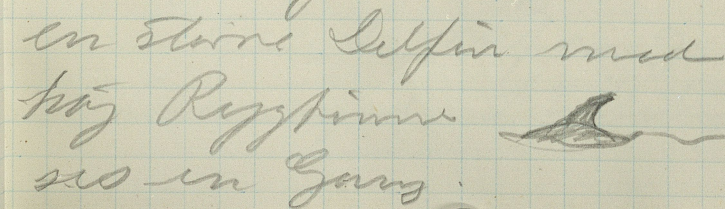 en större Delfin med
høj Rygfinne
ses en Gang.